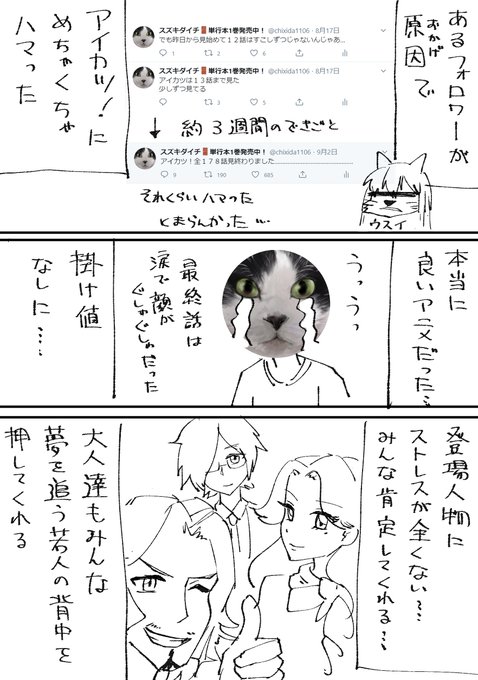 あるフォロワーが
原因で
おかげ
アイカツ!に
めちゃくちゃ
ハマった
スズキダイチ📕単行本1巻発売中! @chixida1106・8月17日
でも昨日から見始めて12話はすこしずつじゃないんじゃあ...
1 2 6
スズキダイチ📕単行本1巻発売中! @chixida1106・8月17日
アイカツは13話まで見た
少しずつ見てる
3 5
↓ 約3週間のできごと
スズキダイチ📕単行本1巻発売中! @chixida1106・9月2日
アイカツ!全178話見終わりました........................
9 190 685
それくらいハマった
とまらんかった…
ウスイ
本当に
良いアニメだった…
うっうっ
最終話は
涙で顔が
ぐしゃぐしゃだった
掛け値
なしに……
登場人物に
ストレスが全くない…
みんな肯定してくれる…
大人達もみんな
夢を追う若人の背中を
押してくれる